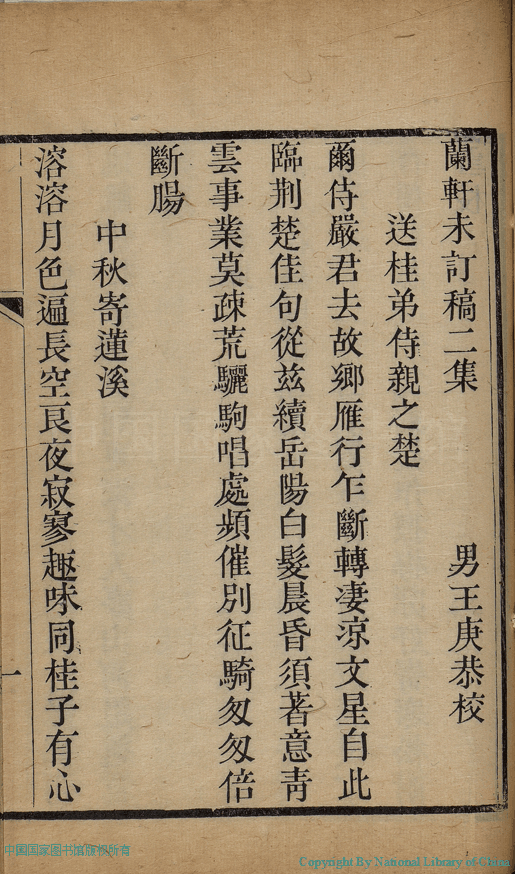 蘭軒未訂稿二集
男王庚恭校
送桂弟侍親之楚
爾侍嚴君去故鄉雁行乍斷轉凄凉文星自此
臨荆楚佳句從兹續岳陽白髮晨昏須著意靑
雲事業莫疎荒驪駒唱處頻催别征騎匆匆倍
斷腸
中秋寄蓮溪
溶溶月色遍長空良夜寂寥趣味同桂子有心
一
中国国家图书馆版权所有
Copyright By National Library of China